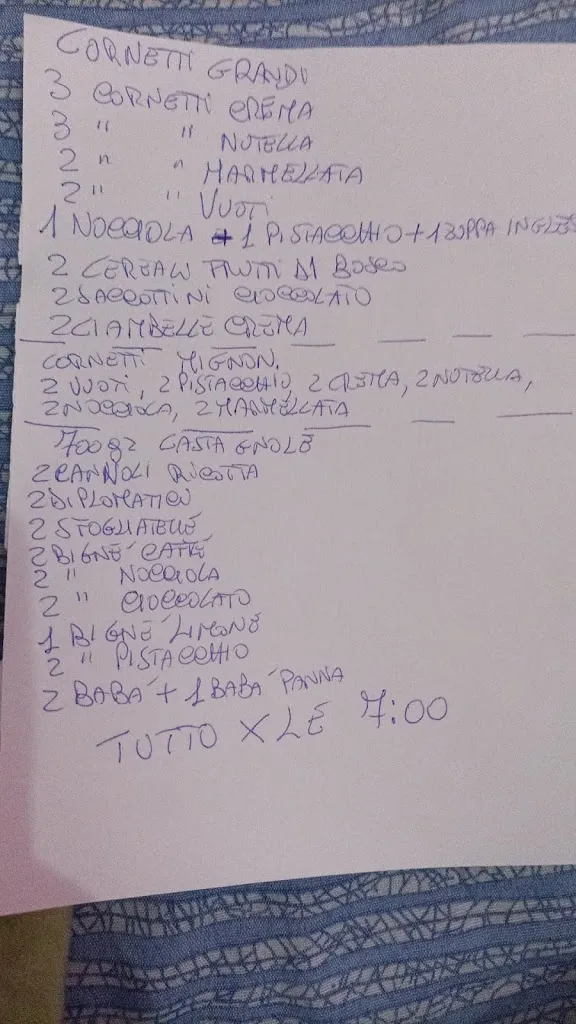 CORNETTI GRANDI
3 CORNETTI CREMA
3 " " NUTELLA
2 " " MARMELLATA
2 " " VUOTI
1 NOCCIOLA + 1 PISTACCHIO + 1 ZUPPA INGLESE
2 CEREALI FRUTTI DI BOSCO
2 SACCOTTINI CIOCCOLATO
2 CIAMBELLE CREMA
CORNETTI MIGNON.
2 VUOTI, 2 PISTACCHIO, 2 CREMA, 2 NUTELLA,
2 NOCCIOLA, 2 MARMELLATA
700 gr CASTAGNOLE
2 CANNOLI RICOTTA
2 DIPLOMATICI
2 SFOGLIATELLE
2 BIGNÉ CAFFÉ
2 " NOCCIOLA
2 " CIOCCOLATO
1 BIGNÉ LIMONE
2 " PISTACCHIO
2 BABÁ + 1 BABÁ PANNA
TUTTO X LE 7:00